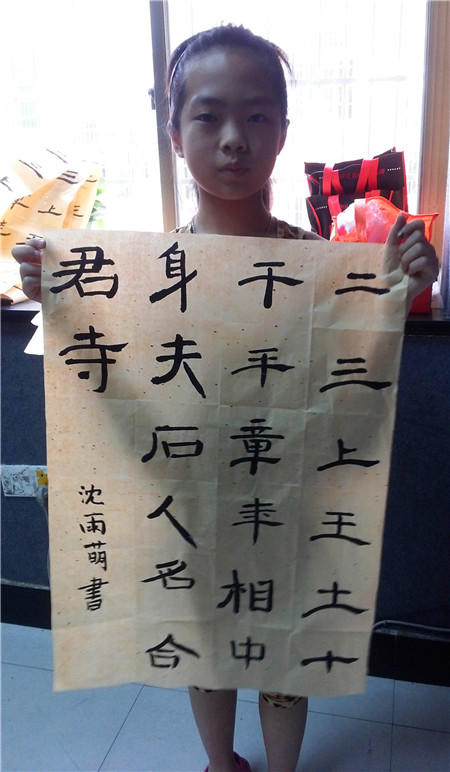 二三上王土十
干平章年相中
身夫石人名合
君寺
沈雨萌書